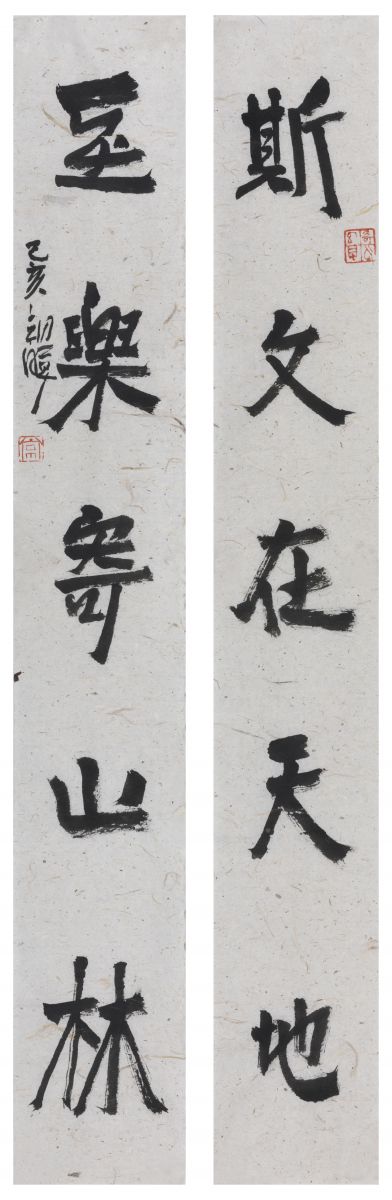 斯文在天地
至樂寄山林
己亥